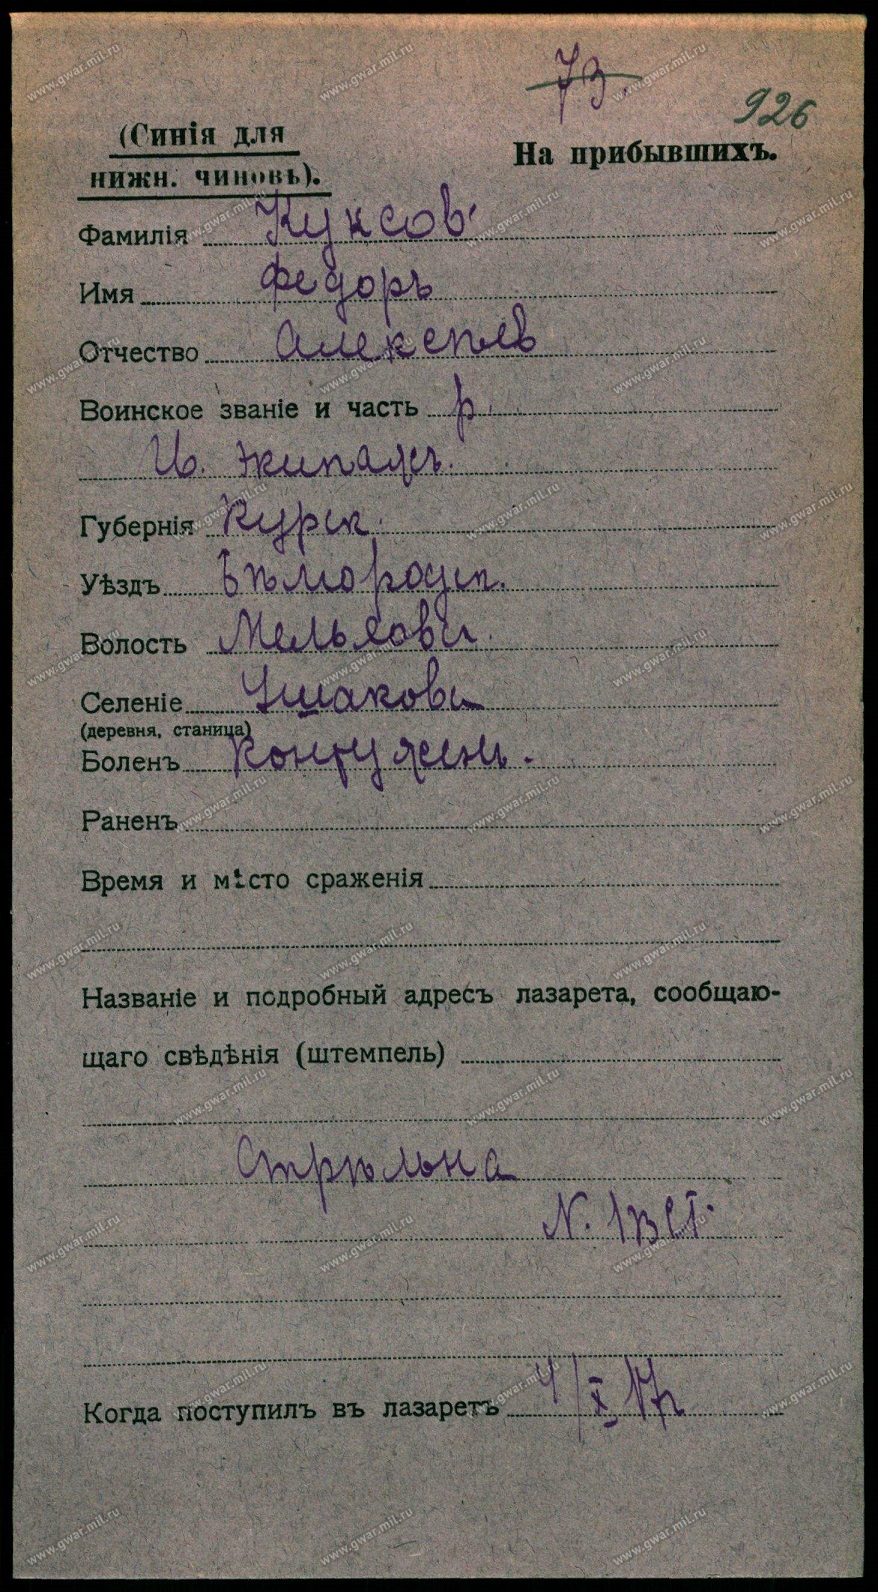 73.
926
(Синія для
нижн. чиновъ).
На прибывшихъ.
Фамилія Куксов
Имя Федоръ
Отчество Алексѣев
Воинское званіе и часть р.
Губернія Курск.
Уѣздъ Бѣлгородск.
Волость Мелехов
Селеніе Ушакова
(деревня, станица)
Боленъ Контужен.
Раненъ
Время и мѣсто сраженія
Названіе и подробный адресъ лазарета, сообщаю-
щаго свѣдѣнія (штемпель)
Стрѣльна
N.
Когда поступилъ въ лазаретъ 4/X 17
www.gwar.mil.ru